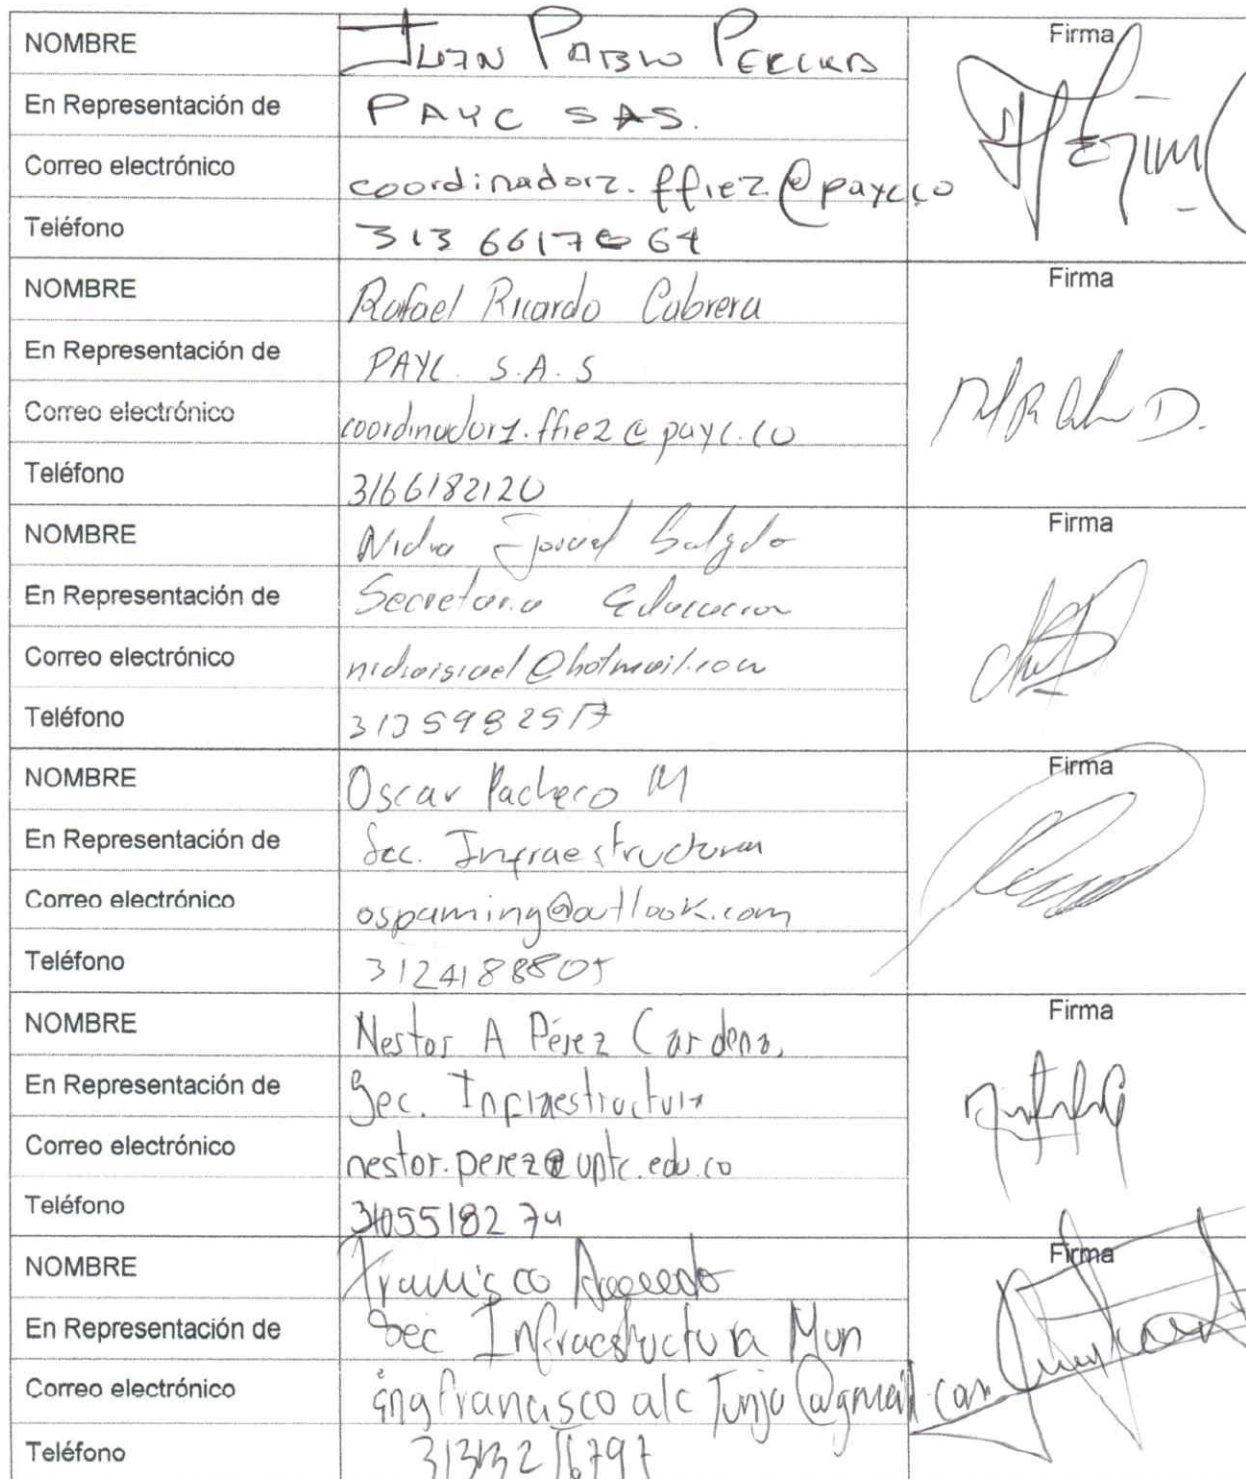 NOMBRE JUAN PABLO PEREIRA Firma
En Representación de PAYC SAS.
Correo electrónico coordinador2.ffie2@payc.co
Teléfono 313 6617064
NOMBRE Rafael Ricardo Cabrera Firma
En Representación de PAYC. S.A.S
Correo electrónico coordinador1.ffie2@payc.co
Teléfono 3166182120
NOMBRE Nidia Salgado Firma
En Representación de Secretaria Educacion
Correo electrónico nidiaisrael@hotmail.com
Teléfono
NOMBRE Oscar Pacheco M Firma
En Representación de Sec. Infraestructura
Correo electrónico ospaming@outlook.com
Teléfono 3124188805
NOMBRE Nestor A Pérez Cardena, Firma
En Representación de Sec. Infraestructura
Correo electrónico nestor.perez@uptc.edu.co
Teléfono 3105518274
NOMBRE Francisco Acevedo Firma
En Representación de Sec Infraestructura Mun
Correo electrónico ingfrancisco alc Tunja@gmail.com
Teléfono